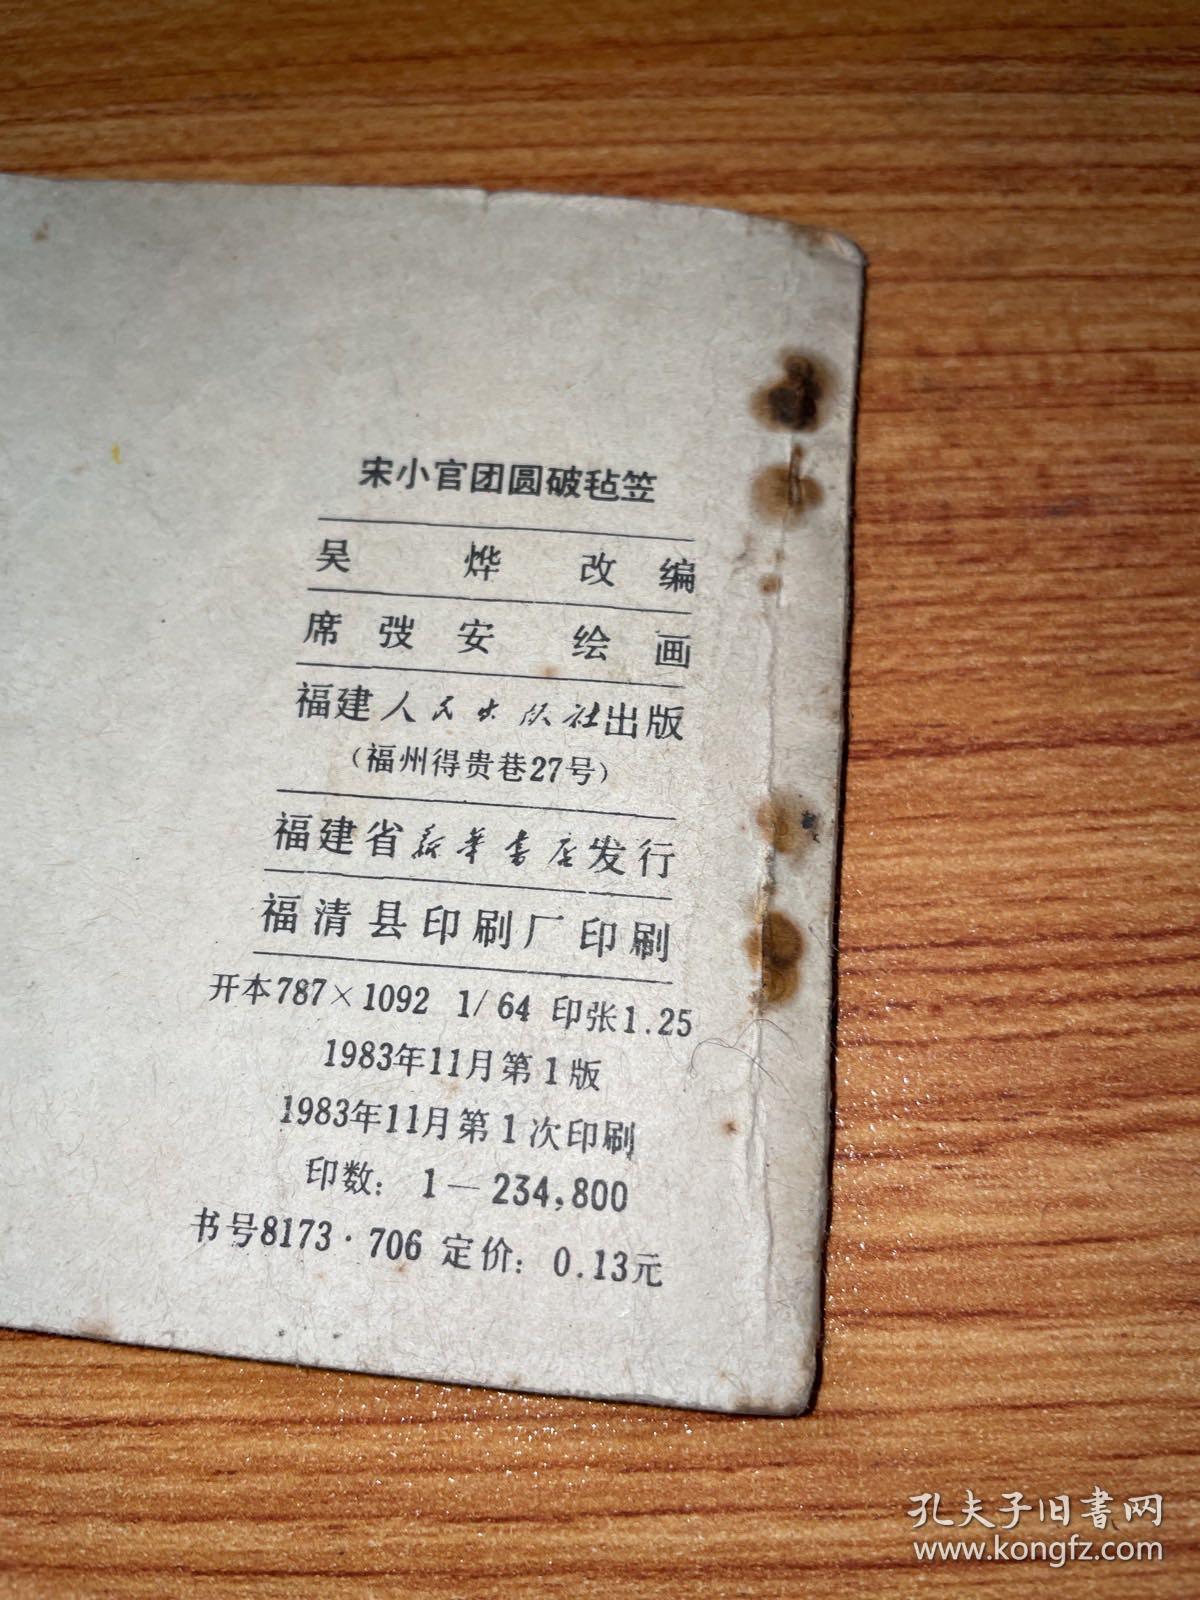 宋小官团圆破毡笠
吴 烨 改 编
席 弢 安 绘 画
福建人民出版社出版
（福州得贵巷27号）
福建省新华书店发行
福清县印刷厂印刷
开本787×1092 1/64 印张1.25
1983年11月第1版
1983年11月第1次印刷
印数：1—234,800
书号8173·706 定价：0.13元
孔夫子旧書网
www.kongfz.com